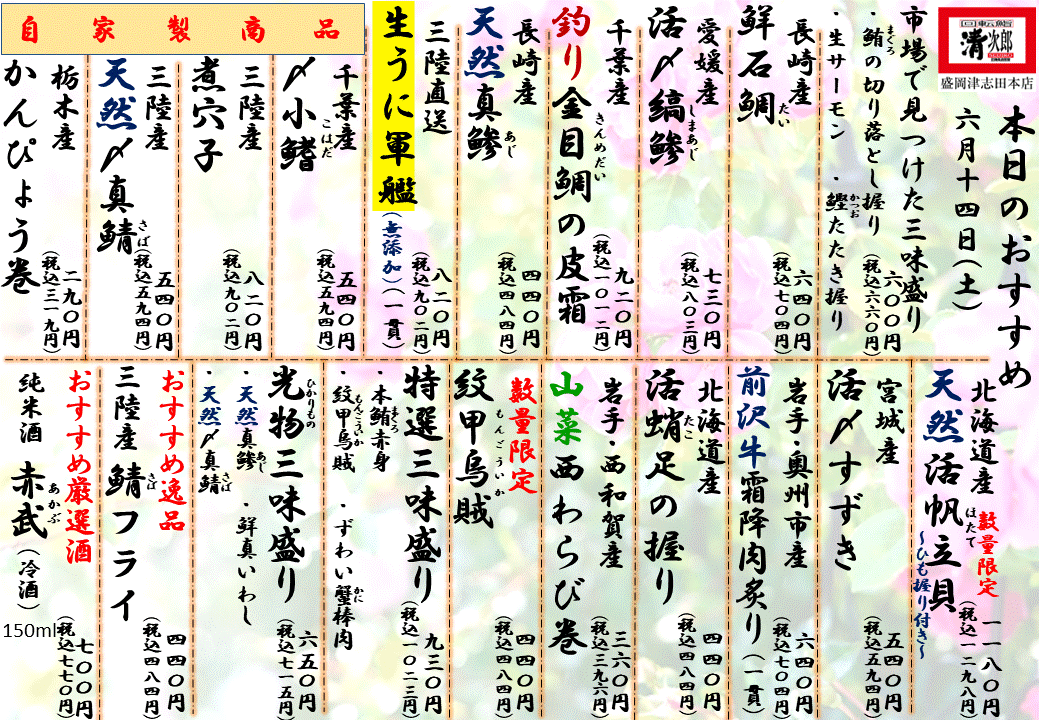 回転鮨
清次郎
盛岡津志田本店
本日のおすすめ
六月十四日(土)
市場で見つけた三味盛り
・鮪の切り落とし握り
まぐろ
・生サーモン ・鰹たたき握り
かつお
六〇〇円
(税込六六〇円)
長崎産
鮮石鯛
たい
六四〇円
(税込七〇四円)
愛媛産
活〆縞鯵
しまあじ
七三〇円
(税込八〇三円)
千葉産
釣り金目鯛の皮霜
きんめだい
九二〇円
(税込一〇一二円)
長崎産
天然真鯵
あじ
四四〇円
(税込四八四円)
三陸直送
生うに軍艦
(無添加)(一貫)
八二〇円
(税込九〇二円)
自家製商品
千葉産
〆小鰭
こはだ
五四〇円
(税込五九四円)
三陸産
煮穴子
八二〇円
(税込九〇二円)
三陸産
天然〆真鯖
さば
五四〇円
(税込五九四円)
栃木産
かんぴょう巻
二九〇円
(税込三一九円)
北海道産
数量限定
天然活帆立貝
ほたて
~ひも握り付き~
一一八〇円
(税込一二九八円)
宮城産
活〆すずき
五四〇円
(税込五九四円)
岩手・奥州市産
前沢牛霜降肉炙り(一貫)
六四〇円
(税込七〇四円)
北海道産
活蛸足の握り
たこ
四四〇円
(税込四八四円)
岩手・西和賀産
山菜西わらび巻
三六〇円
(税込三九六円)
数量限定
紋甲烏賊
もんごういか
四四〇円
(税込四八四円)
特選三味盛り
・本鮪赤身
まぐろ
・紋甲烏賊
もんごういか
・ずわい蟹棒肉
かに
九三〇円
(税込一〇二三円)
光物三味盛り
ひかりもの
・天然真鯵
あじ
・鮮真いわし
・天然〆真鯖
さば
六五〇円
(税込七一五円)
おすすめ逸品
三陸産 鯖フライ
さば
四四〇円
(税込四八四円)
おすすめ厳選酒
純米酒 赤武(冷酒)
あかぶ
150ml
七〇〇円
(税込七七〇円)